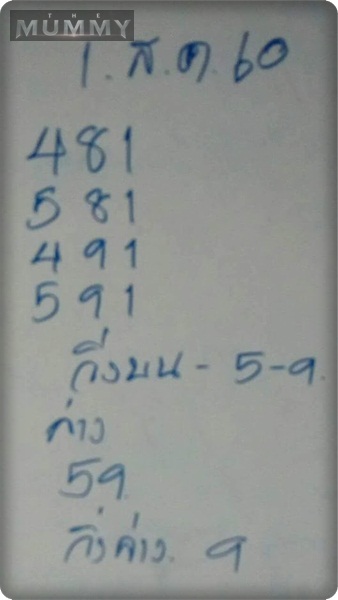 THE
MUMMY
1.ส.ค.60
481
581
491
591
วิ่งบน - 5-9.
ล่าง
59
วิ่งล่าง. 9